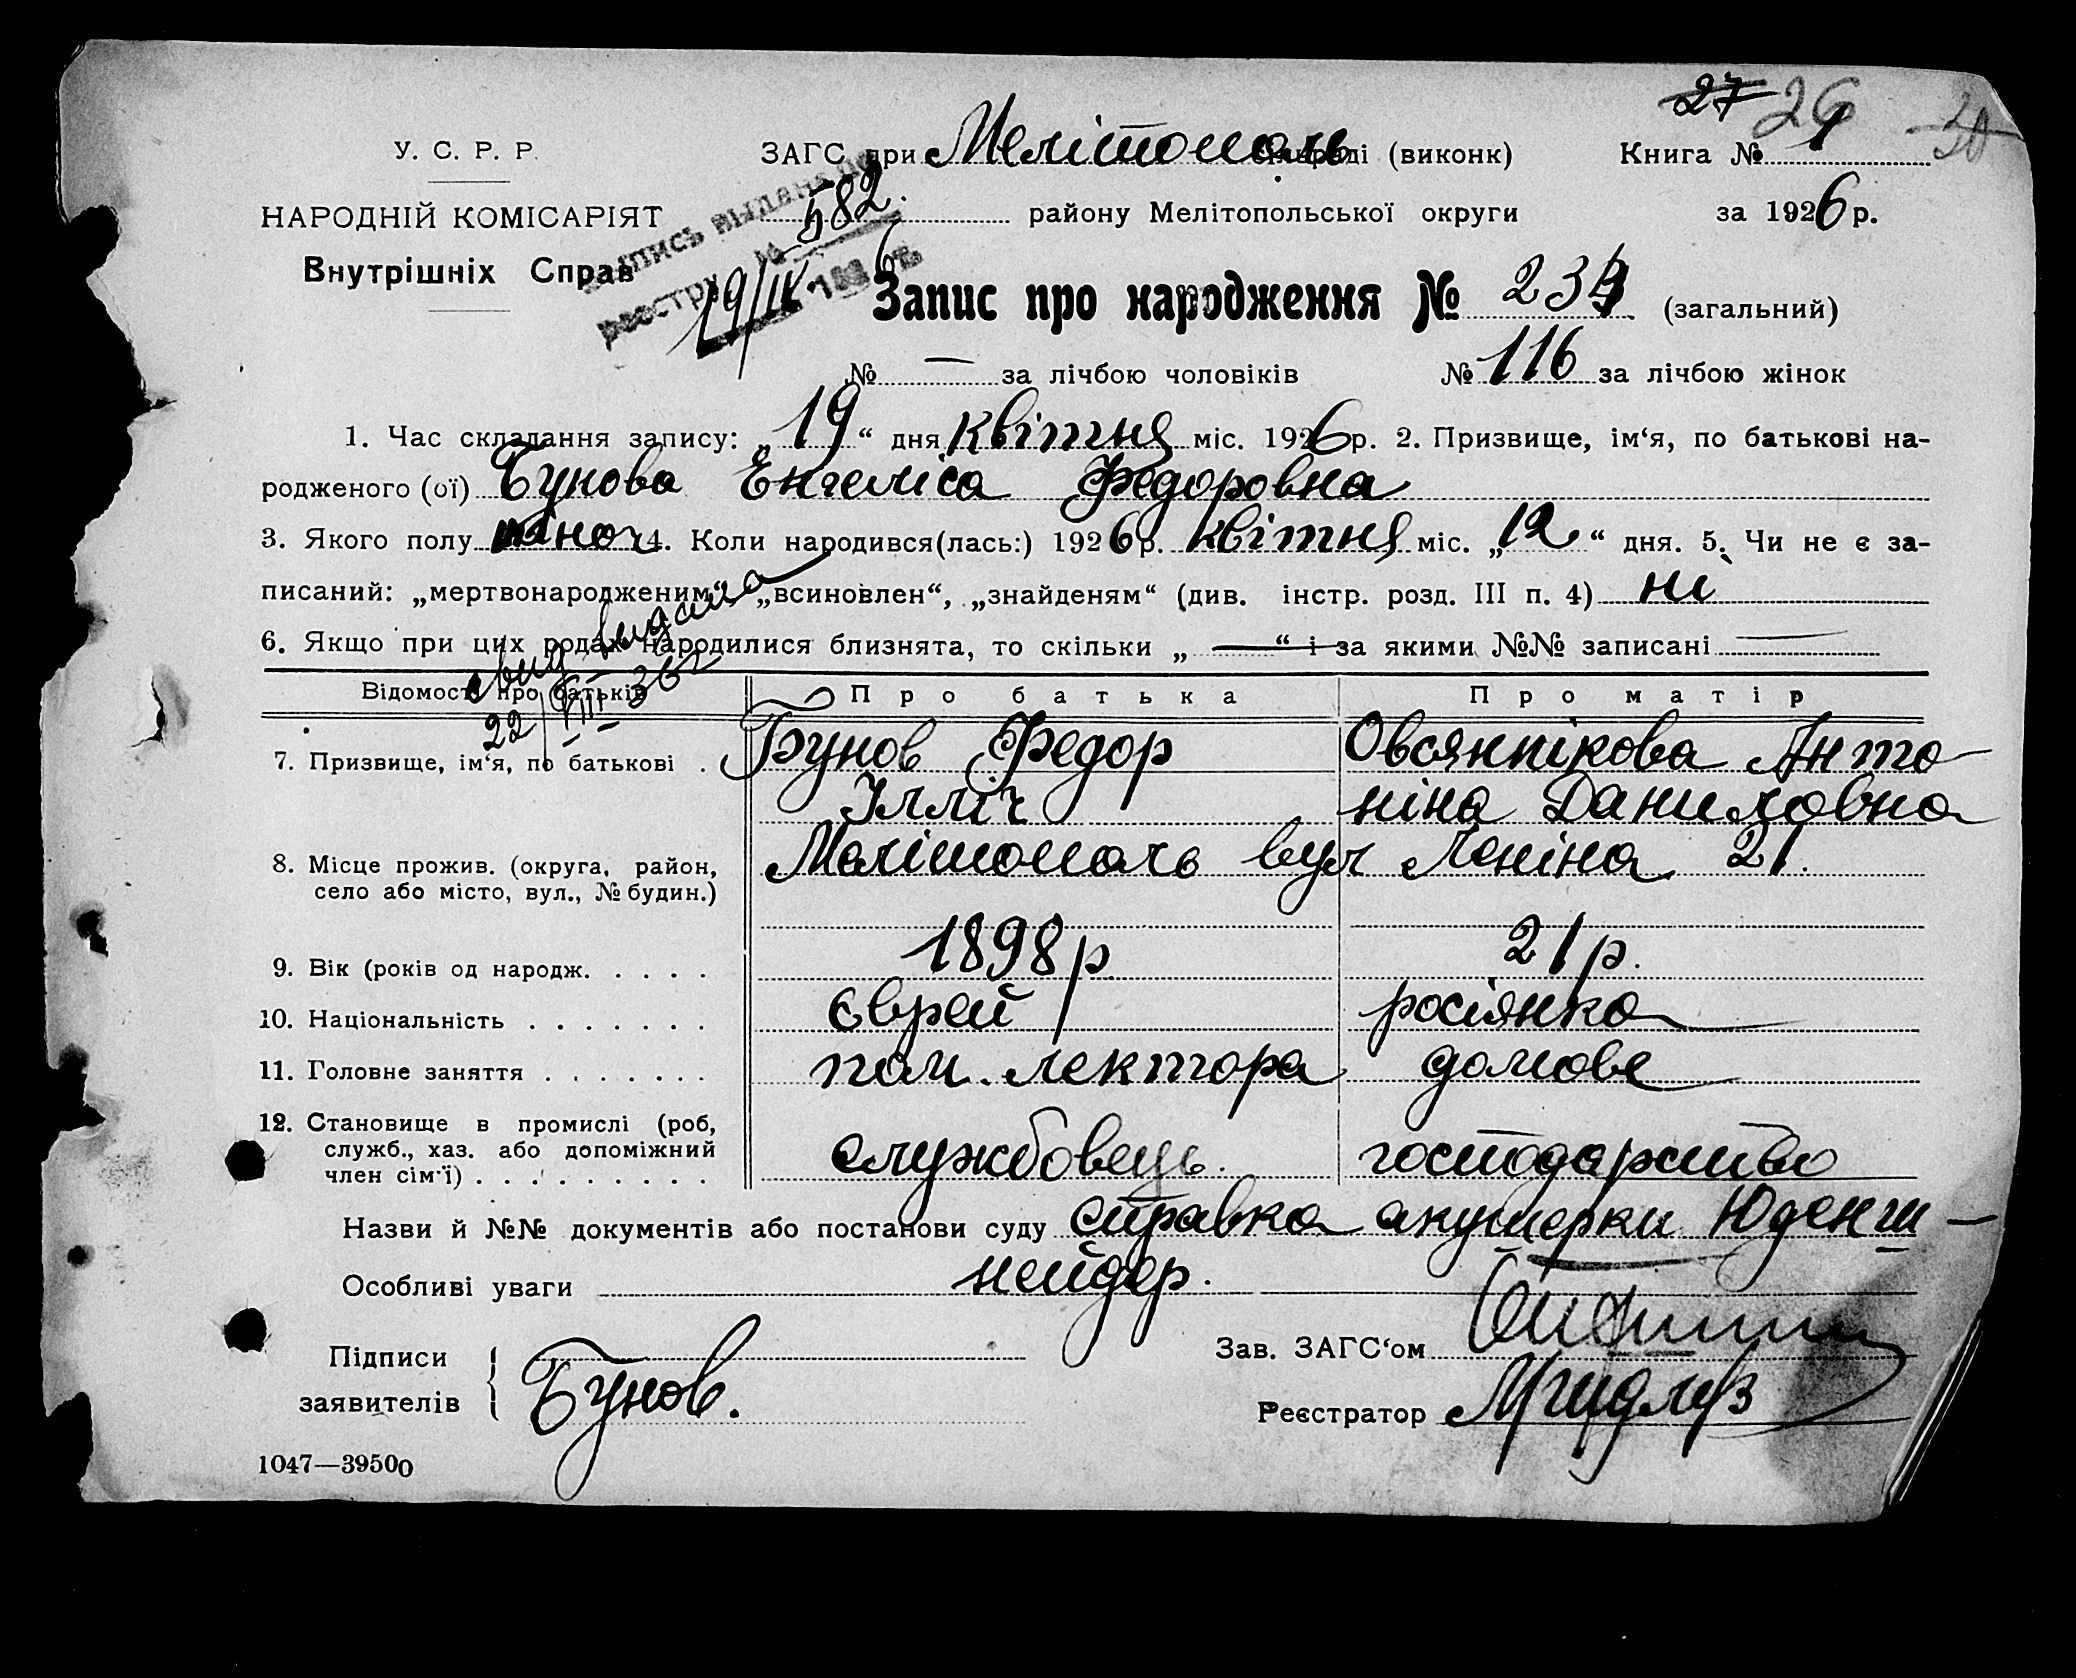 27 26 30
У. С. Р. Р. ЗАГС при Мелітополь сільраді (виконк) Книга № 1
582. району Мелітопольської округи за 1926 р.
НАРОДНІЙ КОМІСАРІЯТ
Внутрішніх Справ
Запись выдана по
реестру № 19/IV 1926 г.
Запис про народження № 234 (загальний)
№ — за лічбою чоловіків № 116 за лічбою жінок
1. Час складання запису: „19“ дня квітня міс. 1926 р. 2. Призвище, ім‘я, по батькові на-
родженого (ої) Бунова Енгеліса Федоровна
3. Якого полу жіноч 4. Коли народився(лась:) 1926 р. квітня міс. „12“ дня. 5. Чи не є за-
писаний: „мертвонародженим“, „всиновлен“, „знайденям“ (див. інстр. розд. III п. 4) ні
6. Якщо при цих родах народилися близнята, то скільки „ —— “ і за якими №№ записані ——
выдана
22/VIII–36г
Відомості про батьків Про батька Про матір
7. Призвище, ім‘я, по батькові . Бунов Федор Овсяннікова Анто-
Ілліч ніна Даниловна
8. Місце прожив. (округа, район, Мелітополь вул Леніна 21.
село або місто, вул., № будин.)
9. Вік (років од народж. . . . . 1898 р 21 р.
10. Національність . . . . . . . єврей росіянка
11. Головне заняття . . . . . . . пом. лектора домове
12. Становище в промислі (роб,
служб., хаз. або допоміжний службовець. господарство
член сім‘ї) . . . . . . . . .
Назви й №№ документів або постанови суду справка акушерки Юденш-
Особливі уваги нейдер.
Підписи
заявителів Бунов.
Зав. ЗАГС‘ом
Реєстратор
1047—39500